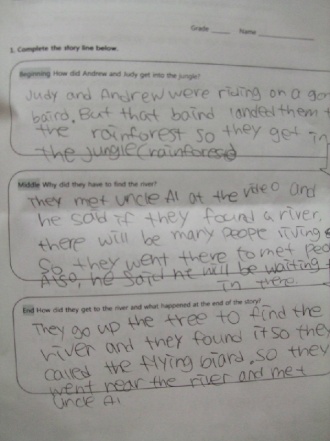 Grade Name
1. Complete the story line below.
Beginning How did Andrew and Judy get into the jungle?
Judy and Andrew were riding on a
baird. But that baind landed them
the rainforest so they get in
the jungle(rainforest)
Middle Why did they have to find the river?
They met uncle Al at the video and
he said if they found a river,
there will be many peope living
So they went there to met
Also, he said he will be waiting
in there.
End How did they get to the river and what happened at the end of the story?
They go up the tree to find the
river and they found it so they
called the flying biard, so they
went near the river and met
uncle Al